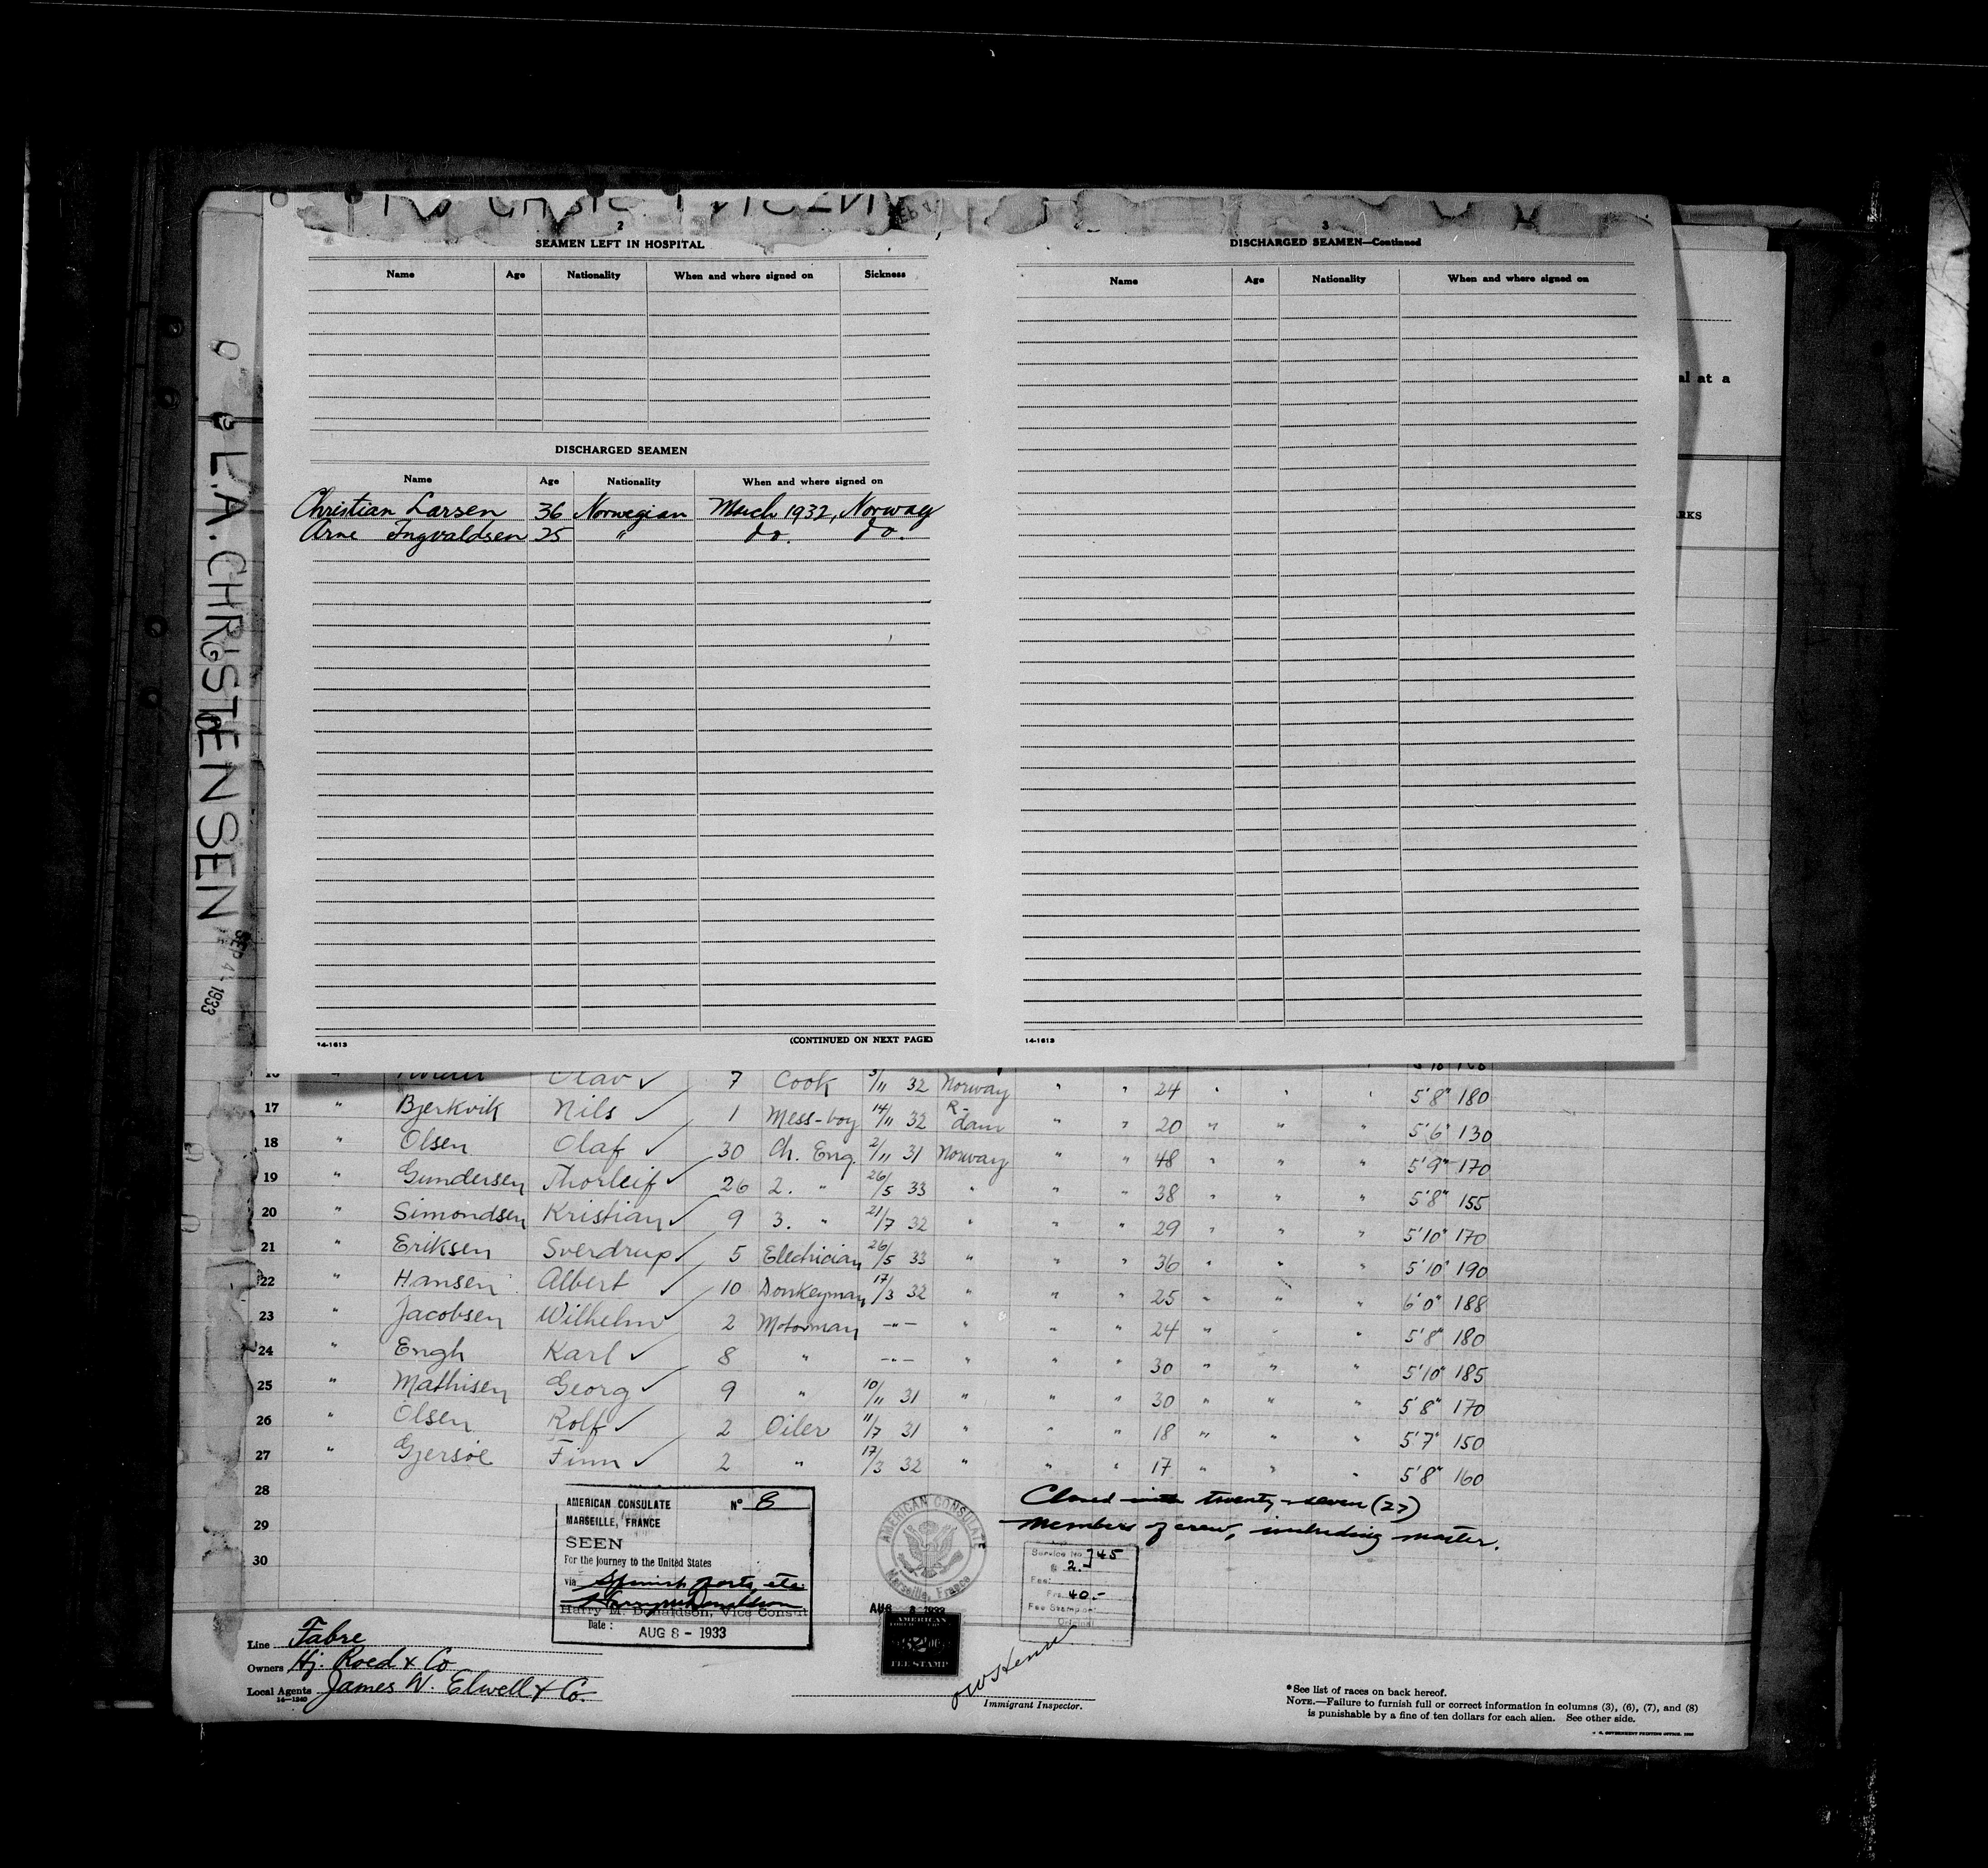 L.A. CHRISTENSEN
SEP 4 1933
2
SEAMEN LEFT IN HOSPITAL
Name Age Nationality When and where signed on Sickness
DISCHARGED SEAMEN
Name Age Nationality When and where signed on
Christian Larsen 36 Norwegian March 1932, Norway
Arne Ingvaldsen 25 " do. do.
14-1613 (CONTINUED ON NEXT PAGE)
3
DISCHARGED SEAMEN—Continued
Name Age Nationality When and where signed on
14-1613
al at a
RKS
Olav ✓ 7 Cook 5/11 32 Norway " " 24 " " " 5'8" 180
17 " Bjerkvik Nils ✓ 1 Mess-boy 14/11 32 R-dam " " 20 " " " 5'6" 130
18 " Olsen Olaf ✓ 30 Ch. Eng. 2/11 31 Norway " " 48 " " " 5'9" 170
19 " Gundersen Thorleif ✓ 26 2. " 26/5 33 " " " 38 " " " 5'8" 155
20 " Simondsen Kristian ✓ 9 3. " 21/7 32 " " " 29 " " " 5'10" 170
21 " Eriksen Sverdrup ✓ 5 Electrician 26/5 33 " " " 36 " " " 5'10" 190
22 " Hansen Albert ✓ 10 Donkeyman 17/3 32 " " " 25 " " " 6'0" 188
23 " Jacobsen Wilhelm ✓ 2 Motorman -"- " " " 24 " " " 5'8" 180
24 " Engh Karl ✓ 8 " -"- " " " 30 " " " 5'10" 185
25 " Mathisen Georg ✓ 9 " 10/11 31 " " " 30 " " " 5'8" 170
26 " Olsen Rolf ✓ 2 Oiler 11/7 31 " " " 18 " " " 5'7" 150
27 " Gjersöe Finn ✓ 2 " 17/3 32 " " " 17 " " " 5'8" 160
28
29
30
Closed with twenty-seven (27)
members of crew, including master.
AMERICAN CONSULATE No 8
MARSEILLE, FRANCE
SEEN
For the journey to the United States
via Spanish ports, etc.
Harry M. Donaldson
Harry M. Donaldson, Vice Consul
Date: AUG 8 - 1933
AMERICAN CONSULATE
Marseille, France
AUG 8 1933
AMERICAN
FEE STAMP
Service No. 745
$ 2.
Fee:
Frs. 40.-
Fee Stamp on
Original
Line Fabre
Owners Hj. Roed & Co
Local Agents James W. Elwell & Co.
14-1240
Immigrant Inspector.
*See list of races on back hereof.
NOTE.—Failure to furnish full or correct information in columns (3), (6), (7), and (8)
is punishable by a fine of ten dollars for each alien. See other side.